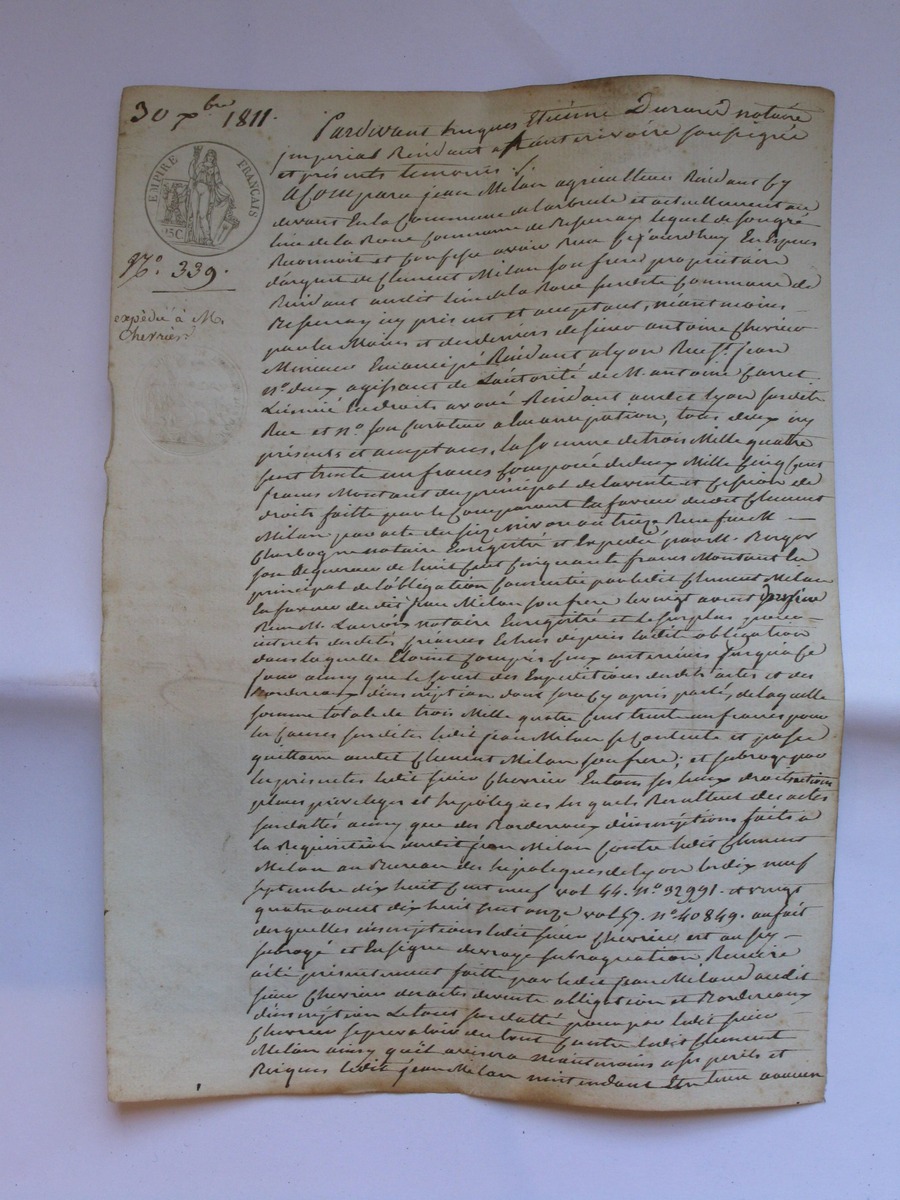 30 xbre 1811.
EMPIRE FRANÇAIS
25C
No. 339.
expédié à M.
Chevrier
Pardevant Jacques Etiénne Durand notaire
imperial Résidant a Saint rivoire soussigné
et présents temoins
A Comparu jean Milan agriculteur Résidant cy
devant En la Commune de et actuellement au
lieu de la Roue Commune de Ressenay lequel de son gré
Reconnoit et Confesse avoir Recu cejourdhuy En Espèces
d'argent de Clement Milan son frere propriétaire
Résidant audit lieu de la Roue susdite Commune de
Ressenay icy présent et acceptant, néantmoins
par les Mains et des deniers de sieur antoine Chevrier
Mineur Emancipé Résidant a lyon Rue St. jean
no. deux agissant de L'autorité de M. antoine Carret
Licencié En droits avoué Résidant audit lyon susdite
Rue et no. son Curateur a l'emancipation, tous deux icy
présents et acceptans, la somme de trois Mille quatre
cent trente un francs Composée de deux Mille Cinq Cent
francs Montant du principal de la vente et Cession de
droits faitte par le Comparant En faveur dudit Clement
Milan par acte du six nivose an treize Recu feu M
Charbogne notaire Enregistré et Expedié par M. Berger
son de huit Cent Cinquante francs Montant En
principal de l'obligation souscritte par ledit Clement Milan
En faveur du dit Jean Milan son frere le vingt avout
Recu M. Lacroix notaire Enregistré et le surplus pour
interets desdites créances Echus depuis ladite obligation
dans laquelle Etoient Compris Ceux anterieurs jusqu'a ce
jour ainsy que le Cout des Expeditions desdits actes et des
Bordereaux d'inscription dont sera cy après parlé, de laquelle
somme totale de trois Mille quatre Cent trente un francs pour
les Causes susdites ledit jean Milan se Contente et passe
quittance audit Clement Milan son frere; et subroge par
les présentes ledit sieur Chevrier En tous ses lieux droits actions
places privileges et hipoteques les quels Resultent des actes
susdattés ainsy que des Bordereaux d'inscriptions faits a
la Requisition dudit jean Milan Contre ledit Clement
Milan au Bureau des hipoteques de lyon le dix neuf
septembre dix huit Cent neuf vol 44. no. 32991. et vingt
quatre avout dix huit Cent onze vol 57. no. 40849. au fait
desquelles inscriptions ledit sieur Chevrier est aussy
subrogé et En signe de vraye subrogation Remise
a été présentement faitte par ledit jean Milan audit
sieur Chevrier des actes de vente obligation et Bordereaux
d'inscription Le tout susdatté pour par ledit sieur
Chevrier se prevaloir du tout Contre ledit Clement
Milan ainsy qu'il avisera néantmoins a ses perils et
Risques ledit jean Milan n'entendant Etre tenu a aucun